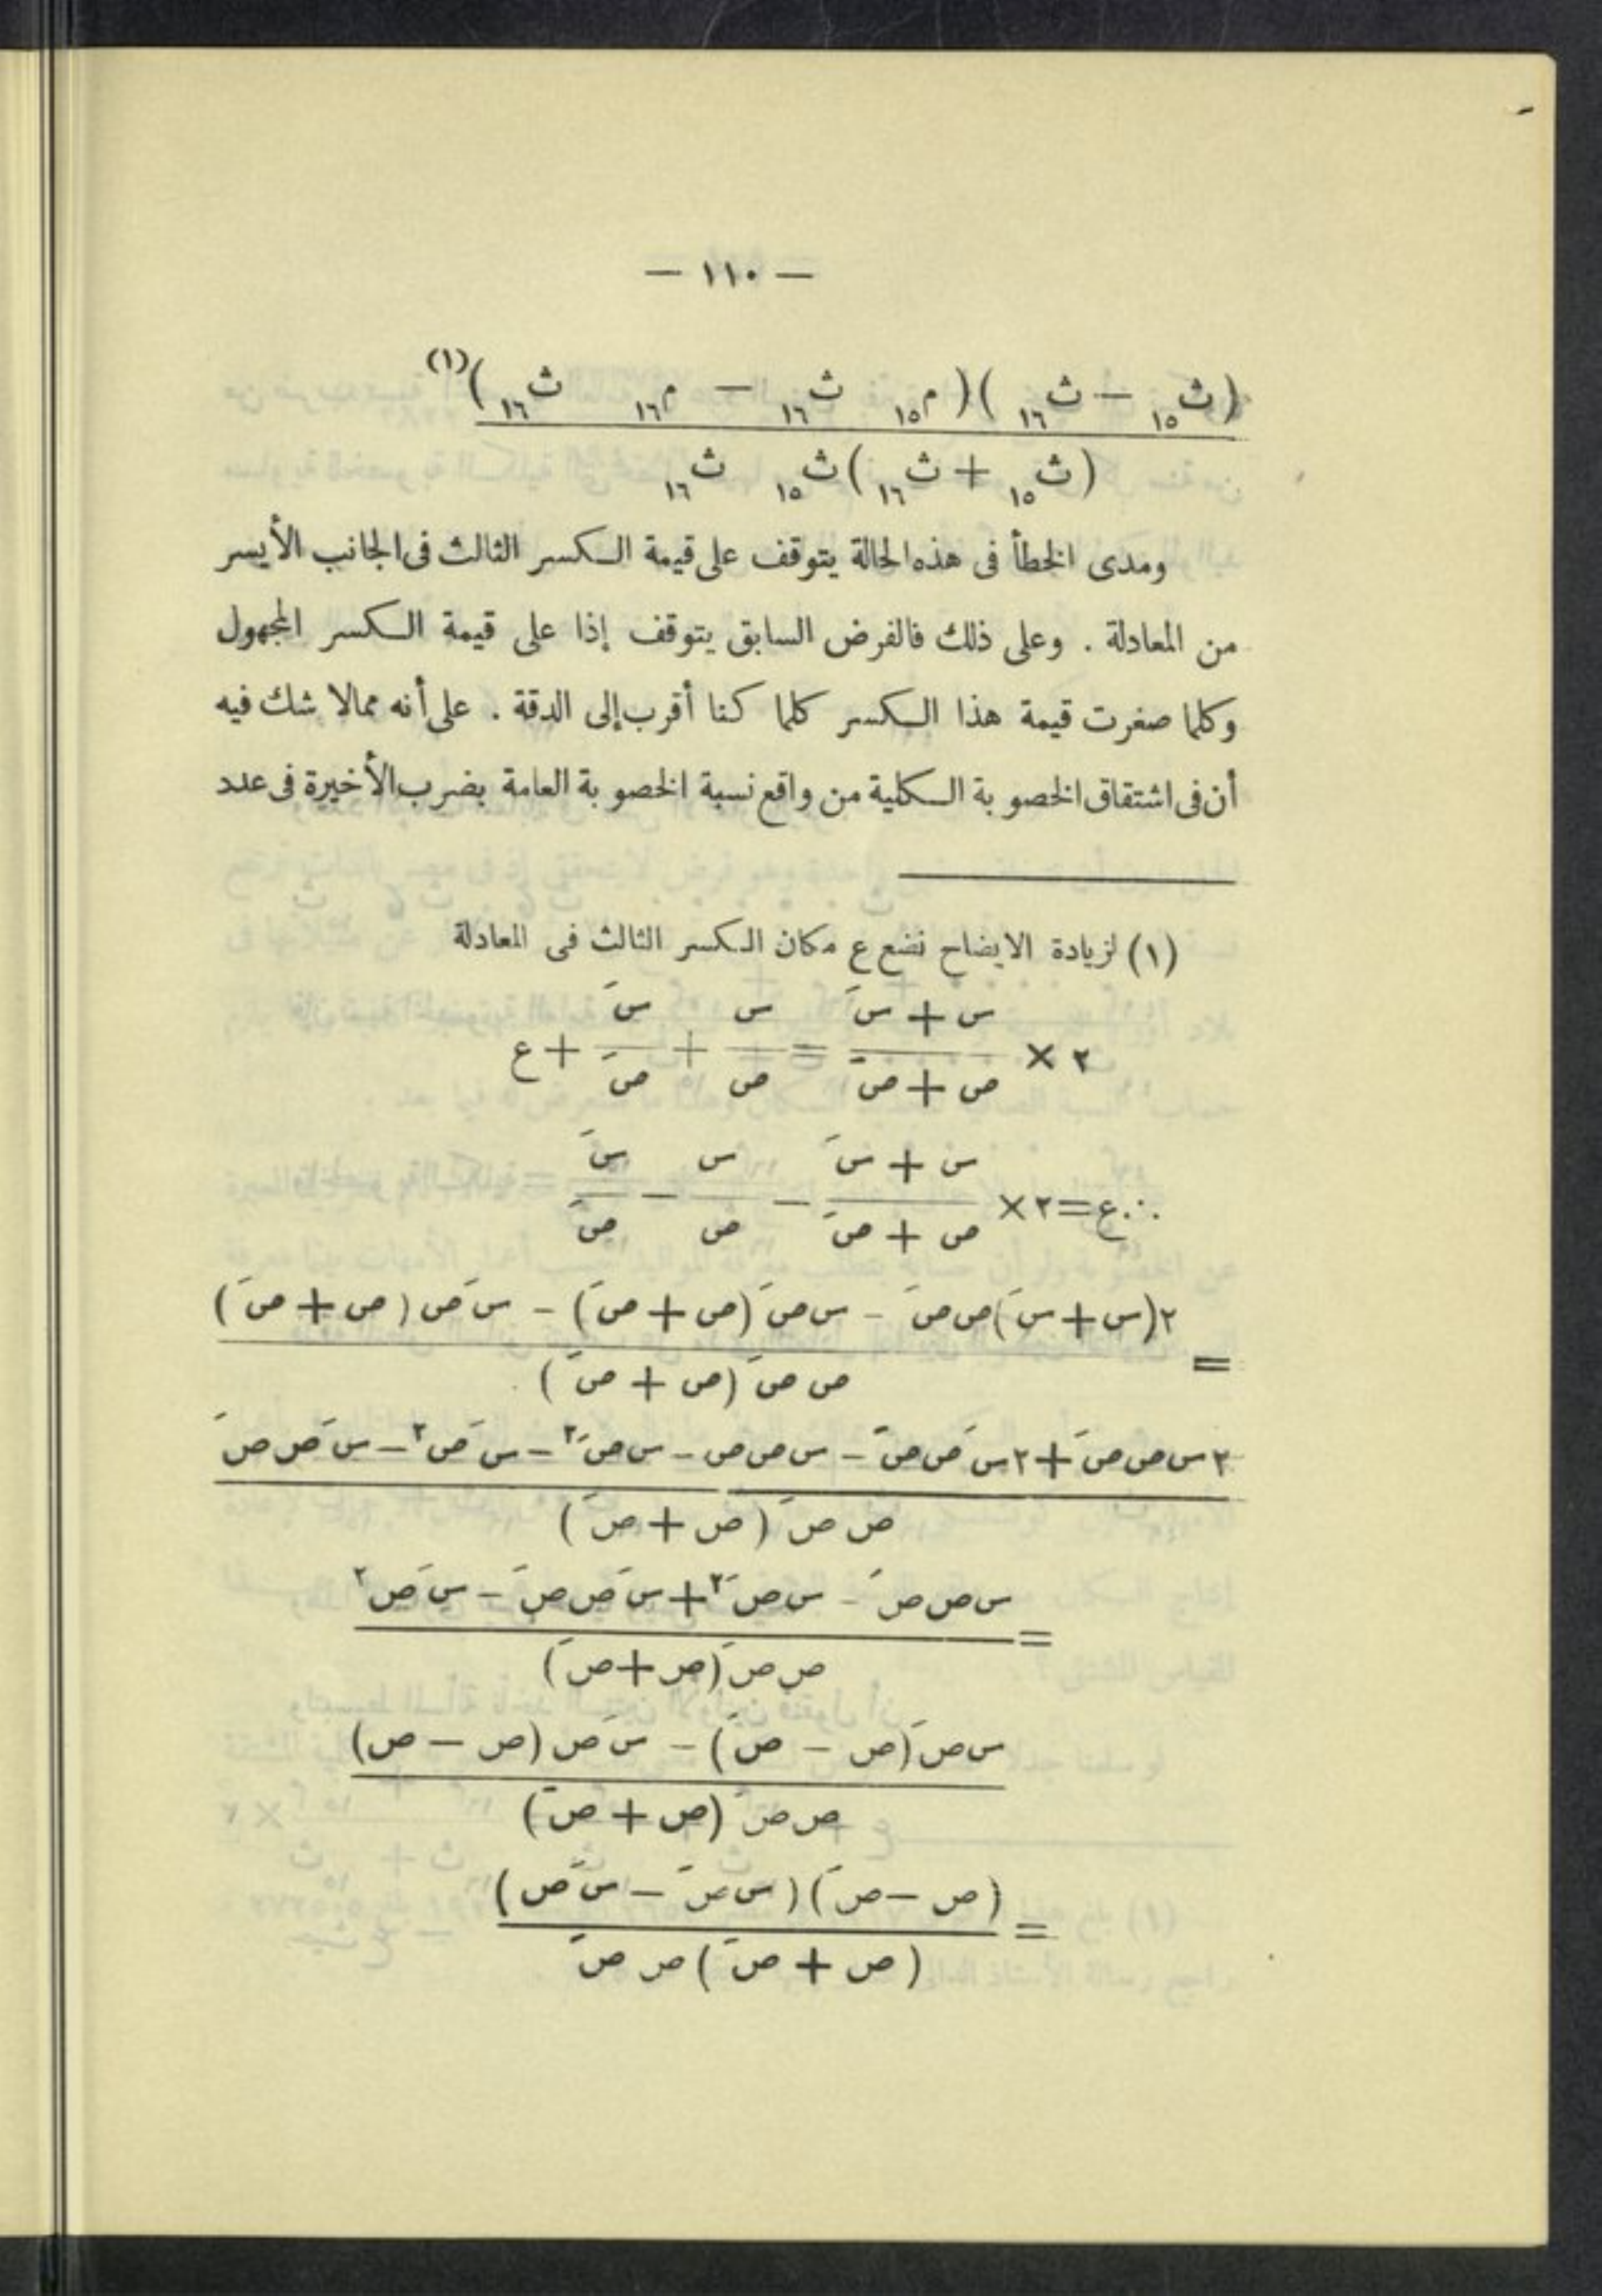 — ١١٠ —
(ث١٥ — ث١٦)(م١٥ ث١٦ — م١٦ ث١٦)(١)
(ث١٥ + ث١٦) ث١٥ ث١٦
ومدى الخطأ فى هذه الحالة يتوقف على قيمة الكسر الثالث فى الجانب الأيسر
من المعادلة . وعلى ذلك فالفرض السابق يتوقف إذا على قيمة الكسر المجهول
وكلما صغرت قيمة هذا الكسر كلما كنا أقرب إلى الدقة . على أنه مما لا شك فيه
أن فى اشتقاق الخصوبة الكلية من واقع نسبة الخصوبة العامة بضرب الأخيرة فى عدد
(١) لزيادة الايضاح نضع ع مكان الكسر الثالث فى المعادلة
س + سَ س سَ
٢ × —— = —— + —— + ع
ص + صَ ص صَ
س + سَ س سَ
∴ ع = ٢ × —— — —— — ——
ص + صَ ص صَ
٢(س + سَ) ص صَ — س صَ (ص + صَ) — سَ ص (ص + صَ)
=
ص صَ (ص + صَ)
٢ س ص صَ + ٢ سَ ص صَ — س ص صَ — س صَ٢ — سَ ص٢ — سَ ص صَ
ص صَ (ص + صَ)
س ص صَ — س صَ٢ + سَ ص صَ — سَ ص٢
=
ص صَ (ص + صَ)
س صَ (ص — صَ) — سَ ص (ص — ص)
ص صَ (ص + صَ)
(ص — صَ) (س صَ — سَ ص)
=
(ص + صَ) ص صَ